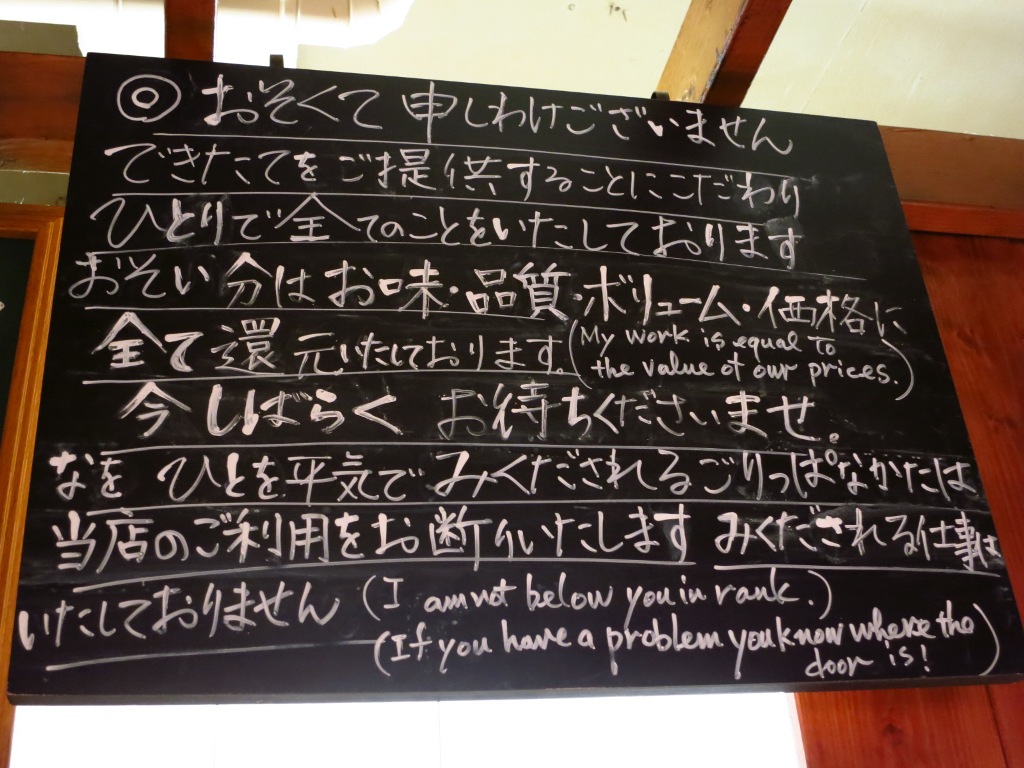 ◎ おそくて 申しわけございません
できたてをご提供することにこだわり
ひとりで全てのことをいたしております
おそい分はお味・品質・ボリューム・価格に
全て還元いたしております。(My work is equal to
the value of our prices.)
今しばらく お待ちくださいませ。
なを ひとを平気で みくだされるごりっぱなかたは
当店のご利用をお断りいたします みくだされる仕事は
いたしておりません (I am not below you in rank.)
(If you have a problem you know where the
door is!)